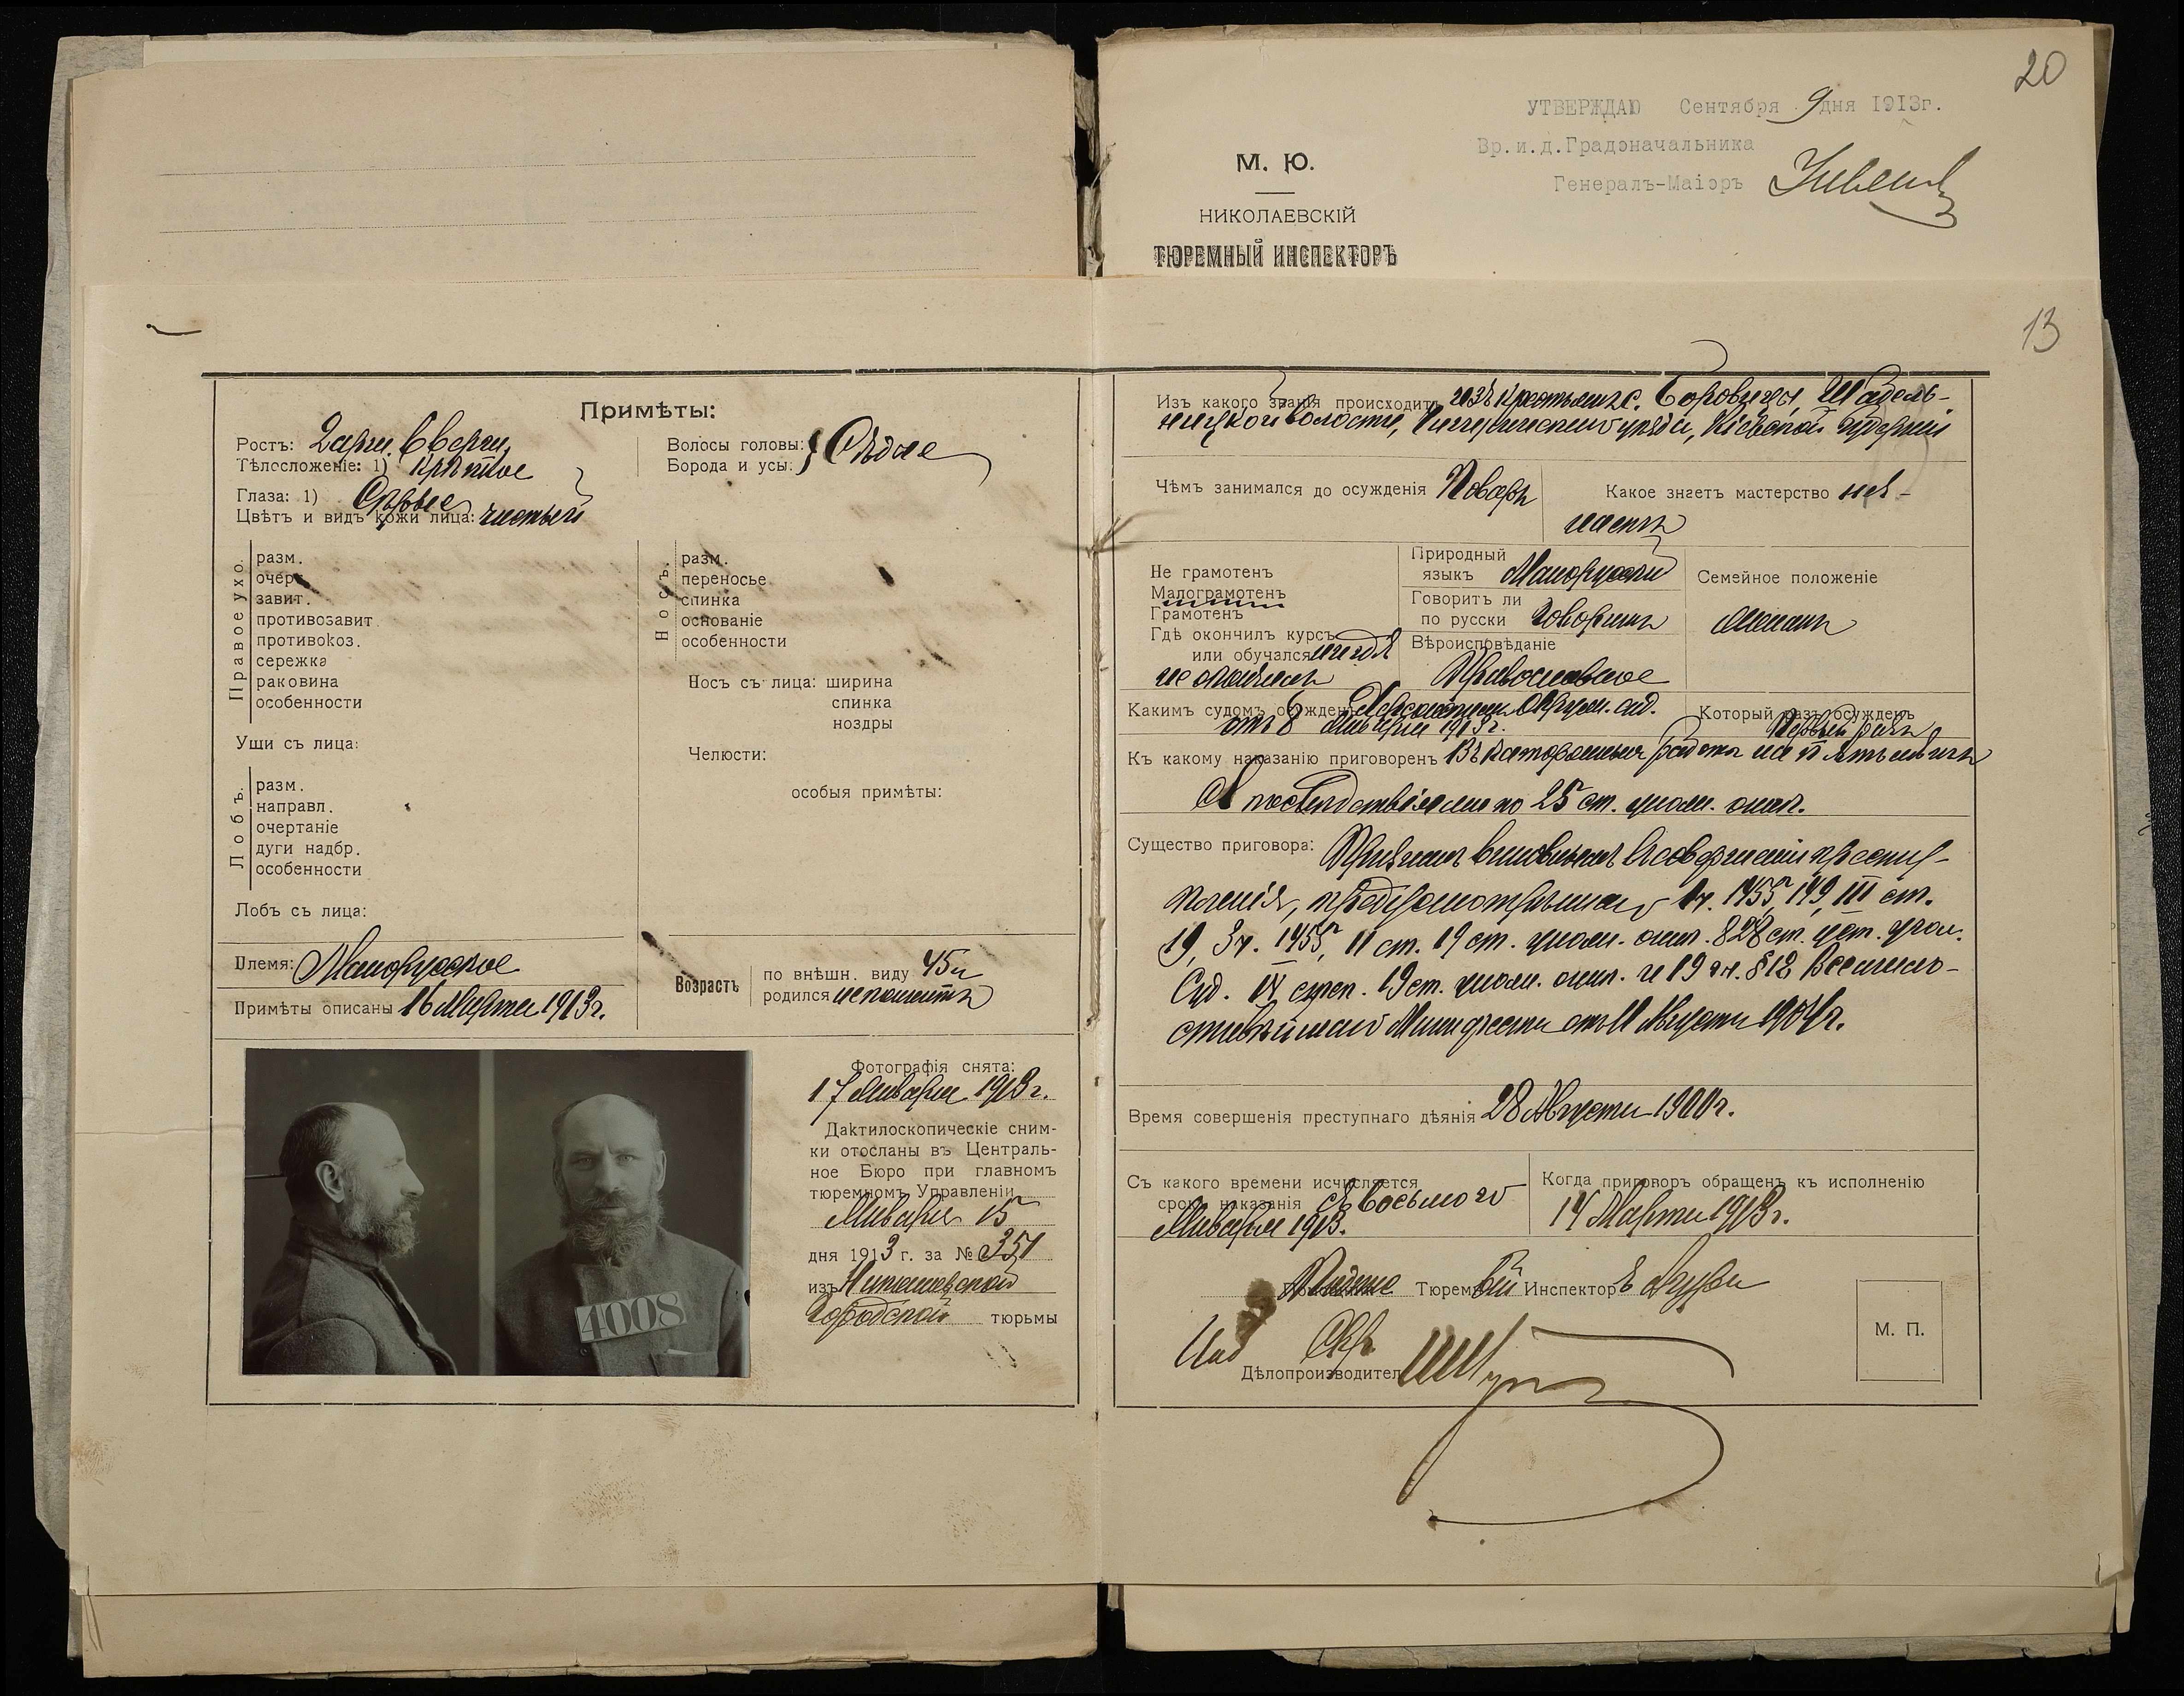 20
УТВЕРЖДАЮ Сентября 9 дня 1913г.
Вр.и.д.Градоначальника
Генералъ-Маіоръ
М. Ю.
НИКОЛАЕВСКІЙ
ТЮРЕМНЫЙ ИНСПЕКТОРЪ
13
Примѣты:
Ростъ: 2 арш. 6 верш.
Тѣлосложеніе: 1) крѣпкое
Глаза: 1) Сѣрые
Цвѣтъ и видъ кожи лица: чистый
Волосы головы: } Сѣдые
Борода и усы:
Правое ухо.
разм.
очерт.
завит.
противозавит.
противокоз.
сережка
раковина
особенности
Носъ.
разм.
переносье
спинка
основаніе
особенности
Носъ съ лица: ширина
спинка
ноздры
Уши съ лица:
Челюсти:
Лобъ.
разм.
направл.
очертаніе
дуги надбр.
особенности
особыя примѣты:
Лобъ съ лица:
Племя: Малорусское
Примѣты описаны 16 Марта 1913г.
Возрастъ
по внѣшн. виду 45 л
родился не помнитъ
4008
Фотографія снята:
17 Января 1913 г.
Дактилоскопическіе сним-
ки отосланы въ Централь-
ное Бюро при главномъ
тюремномъ Управленіи
Января 15
дня 1913 г. за № 351
изъ Николаевской
Городской тюрьмы
Изъ какого званія происходитъ изъ крестьянъ с. Боровицы, Шабель-
ницкой волости, Чигиринскаго уѣзда, Кіевской губерніи
Чѣмъ занимался до осужденія Поваръ
Какое знаетъ мастерство
Не грамотенъ
Малограмотенъ
Грамотенъ
Гдѣ окончилъ курсъ
или обучался нигдѣ
не
Природный
языкъ Малорусскій
Говоритъ ли
по русски Говоритъ
Вѣроисповѣданіе
Православное
Семейное положеніе
женатъ
Какимъ судомъ осужденъ Херсонскимъ Окруж. суд.
отъ 8 Января 1913 г.
Который разъ осужденъ
Первый разъ
Къ какому наказанію приговоренъ Въ каторжныя работы на
съ послѣдствіями по 25 ст. улож. о нак.
Существо приговора: Признанъ виновнымъ въ совершеніи преступ-
ленія, предусмотрѣннаго 1 ч. 1455, 149, III ст.
19, 3 ч. 1455, II ст. 19 ст. улож. о нак. 828 ст. уст. угол.
Суд. IV степ. 19 ст. улож. о нак. и 19 гл. § 12 Всемило-
стивѣйшаго Манифеста отъ 11 Августа 1904 г.
Время совершенія преступнаго дѣянія 28 Августа 1900 г.
Съ какого времени исчисляется
срокъ наказанія съ восьмого
Января 1913.
Когда приговоръ обращенъ къ исполненію
14 Марта 1913 г.
Тюремный Инспекторъ
Дѣлопроизводитель
М. П.